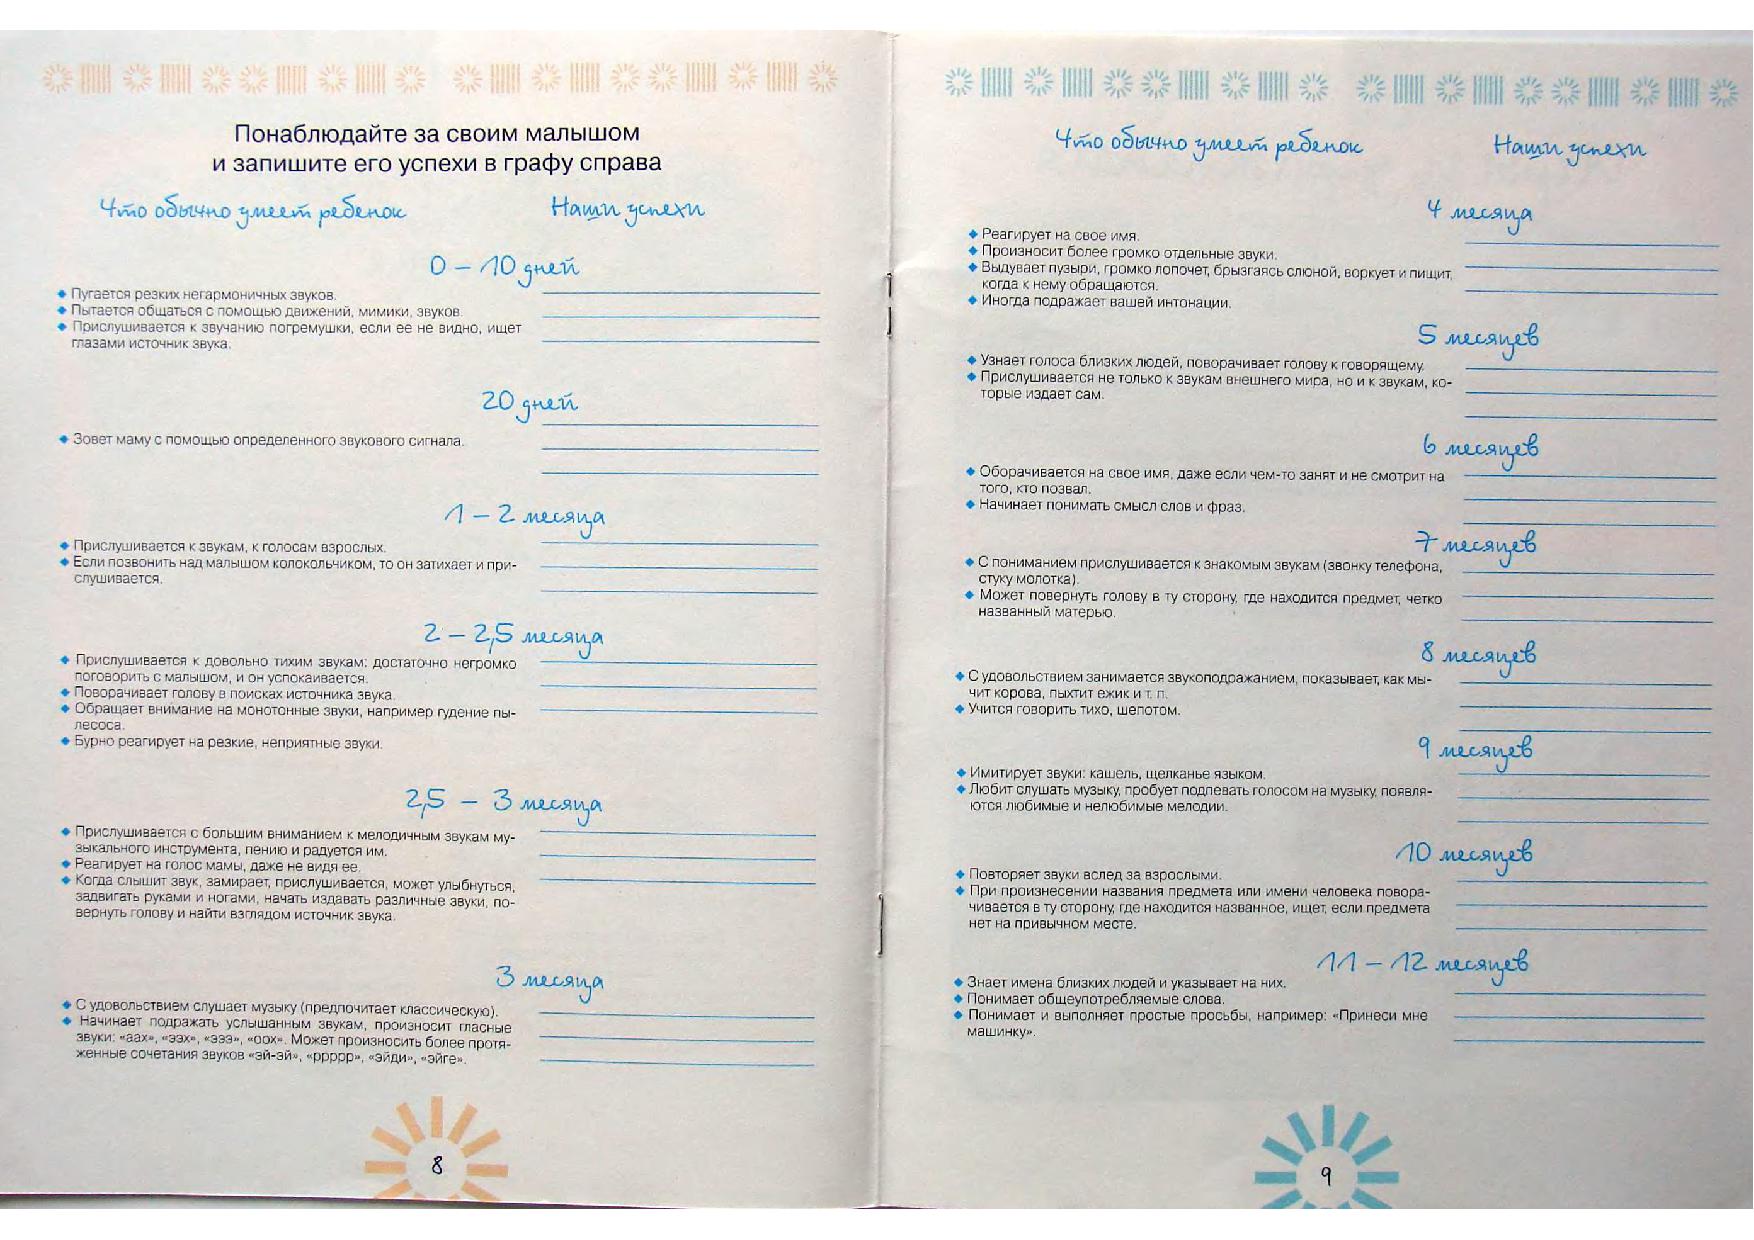 Понаблюдайте за своим малышом
и запишите его успехи в графу справа
Что обычно умеет ребенок Наши успехи
0 – 10 дней
Пугается резких негармоничных звуков.
Пытается общаться с помощью движений, мимики, звуков.
Прислушивается к звучанию погремушки, если ее не видно, ищет
глазами источник звука.
20 дней
Зовет маму с помощью определенного звукового сигнала.
1 – 2 месяца
Прислушивается к звукам, к голосам взрослых.
Если позвонить над малышом колокольчиком, то он затихает и при-
слушивается.
2 – 2,5 месяца
Прислушивается к довольно тихим звукам: достаточно негромко
поговорить с малышом, и он успокаивается.
Поворачивает голову в поисках источника звука.
Обращает внимание на монотонные звуки, например гудение пы-
лесоса.
Бурно реагирует на резкие, неприятные звуки.
2,5 – 3 месяца
Прислушивается с большим вниманием к мелодичным звукам му-
зыкального инструмента, пению и радуется им.
Реагирует на голос мамы, даже не видя ее.
Когда слышит звук, замирает, прислушивается, может улыбнуться,
задвигать руками и ногами, начать издавать различные звуки, по-
вернуть голову и найти взглядом источник звука.
3 месяца
С удовольствием слушает музыку (предпочитает классическую).
Начинает подражать услышанным звукам, произносит гласные
звуки: «аах», «ээх», «эээ», «оох». Может произносить более протя-
женные сочетания звуков «эй-эй», «ррррр», «эйди», «эйге».
8
Что обычно умеет ребенок Наши успехи
4 месяца
Реагирует на свое имя.
Произносит более громко отдельные звуки.
Выдувает пузыри, громко лопочет, брызгаясь слюной, воркует и пищит,
когда к нему обращаются.
Иногда подражает вашей интонации.
5 месяцев
Узнает голоса близких людей, поворачивает голову к говорящему.
Прислушивается не только к звукам внешнего мира, но и к звукам, ко-
торые издает сам.
6 месяцев
Оборачивается на свое имя, даже если чем-то занят и не смотрит на
того, кто позвал.
Начинает понимать смысл слов и фраз.
7 месяцев
С пониманием прислушивается к знакомым звукам (звонку телефона,
стуку молотка).
Может повернуть голову в ту сторону, где находится предмет, четко
названный матерью.
8 месяцев
С удовольствием занимается звукоподражанием, показывает, как мы-
чит корова, пыхтит ежик и т. п.
Учится говорить тихо, шепотом.
9 месяцев
Имитирует звуки: кашель, щелканье языком.
Любит слушать музыку, пробует подпевать голосом на музыку, появля-
ются любимые и нелюбимые мелодии.
10 месяцев
Повторяет звуки вслед за взрослыми.
При произнесении названия предмета или имени человека повора-
чивается в ту сторону, где находится названное, ищет, если предмета
нет на привычном месте.
11 – 12 месяцев
Знает имена близких людей и указывает на них.
Понимает общеупотребляемые слова.
Понимает и выполняет простые просьбы, например: «Принеси мне
машинку».
9